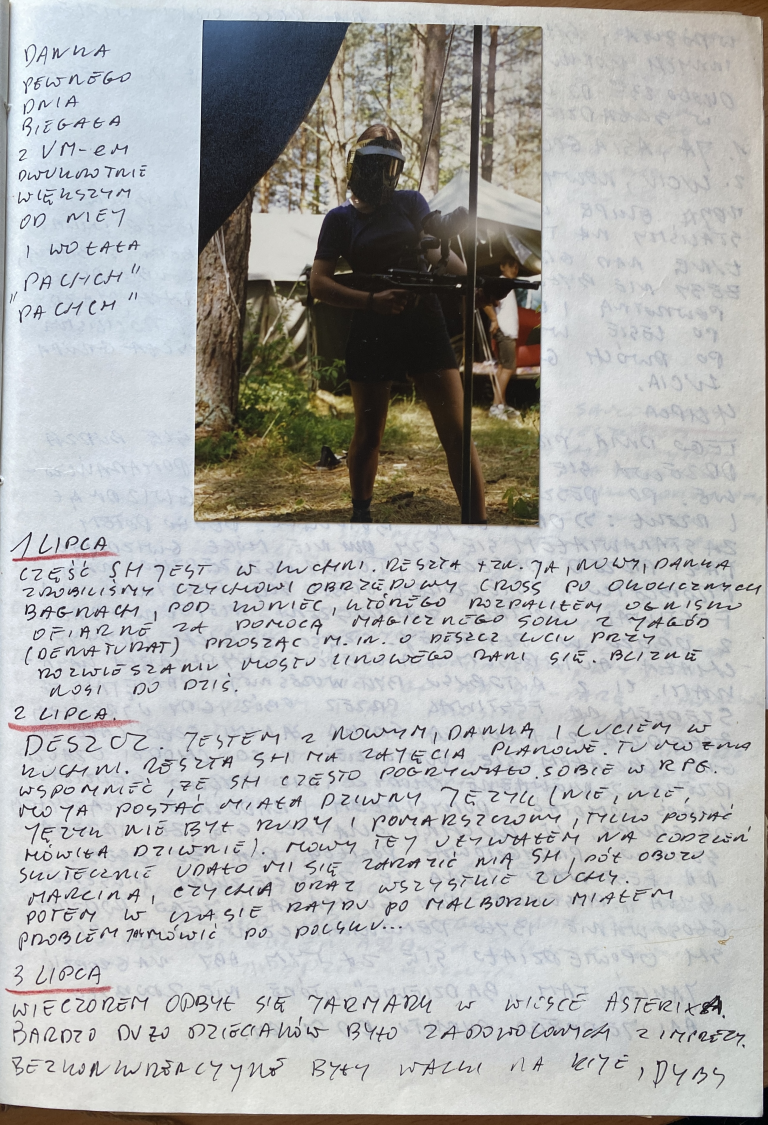 DANKA
PEWNEGO
DNIA
BIEGAŁA
Z VM-EM
DWUKROTNIE
WIĘKSZYM
OD NIEJ
I WOŁAŁA
"PACHCH"
"PACHCH"
1 LIPCA
CZĘŚĆ SH JEST W KUCHNI. RESZTA TZN. JA, NOWY, DANKA
ZROBILIŚMY CZYCHOWI OBRZĘDOWY CROSS PO OKOLICZNYCH
BAGNACH, POD KONIEC, KTÓREGO ROZPALIŁEM OGNISKO
OFIARNE ZA POMOCĄ MAGICZNEGO SOKU Z JAGÓD
(DENATURAT) PROSZĄC M.IN. O DESZCZ LUCIU PRZY
ROZWIESZANIU MOSTU LINOWEGO RANI SIĘ. BLIZNĘ
NOSI DO DZIŚ.
2 LIPCA.
DESZCZ. JESTEM Z NOWYM, DANKĄ I LUCIEM W
KUCHNI. RESZTA SH MA ZAJĘCIA PLANOWE. TU MOŻNA
WSPOMNIEĆ, ŻE SH CZĘSTO POGRYWAŁO SOBIE W RPG.
MOJA POSTAĆ MIAŁA DZIWNY JĘZYK (NIE, NIE,
JĘZYK NIE BYŁ RUDY I POMARSZCZONY, TYLKO POSTAĆ
MÓWIŁA DZIWNIE). MOWY TEJ UŻYWAŁEM NA CODZIEŃ
SKUTECZNIE UDAŁO MI SIĘ ZARAZIĆ NIĄ SH, PÓŁ OBOZU
MARCINA, CZYCHA ORAZ WSZYSTKIE ZUCHY.
POTEM W CZASIE RAJDU PO MALBORKU MIAŁEM
PROBLEM MÓWIĆ PO POLSKU...
3 LIPCA
WIECZOREM ODBYŁ SIĘ JARMARK W WIOSCE ASTERIXA.
BARDZO DUŻO DZIECIAKÓW BYŁO ZADOWOLONYCH Z IMPREZY.
BEZKONKURENCYJNE BYŁY WALKI NA KIJE, DYBY